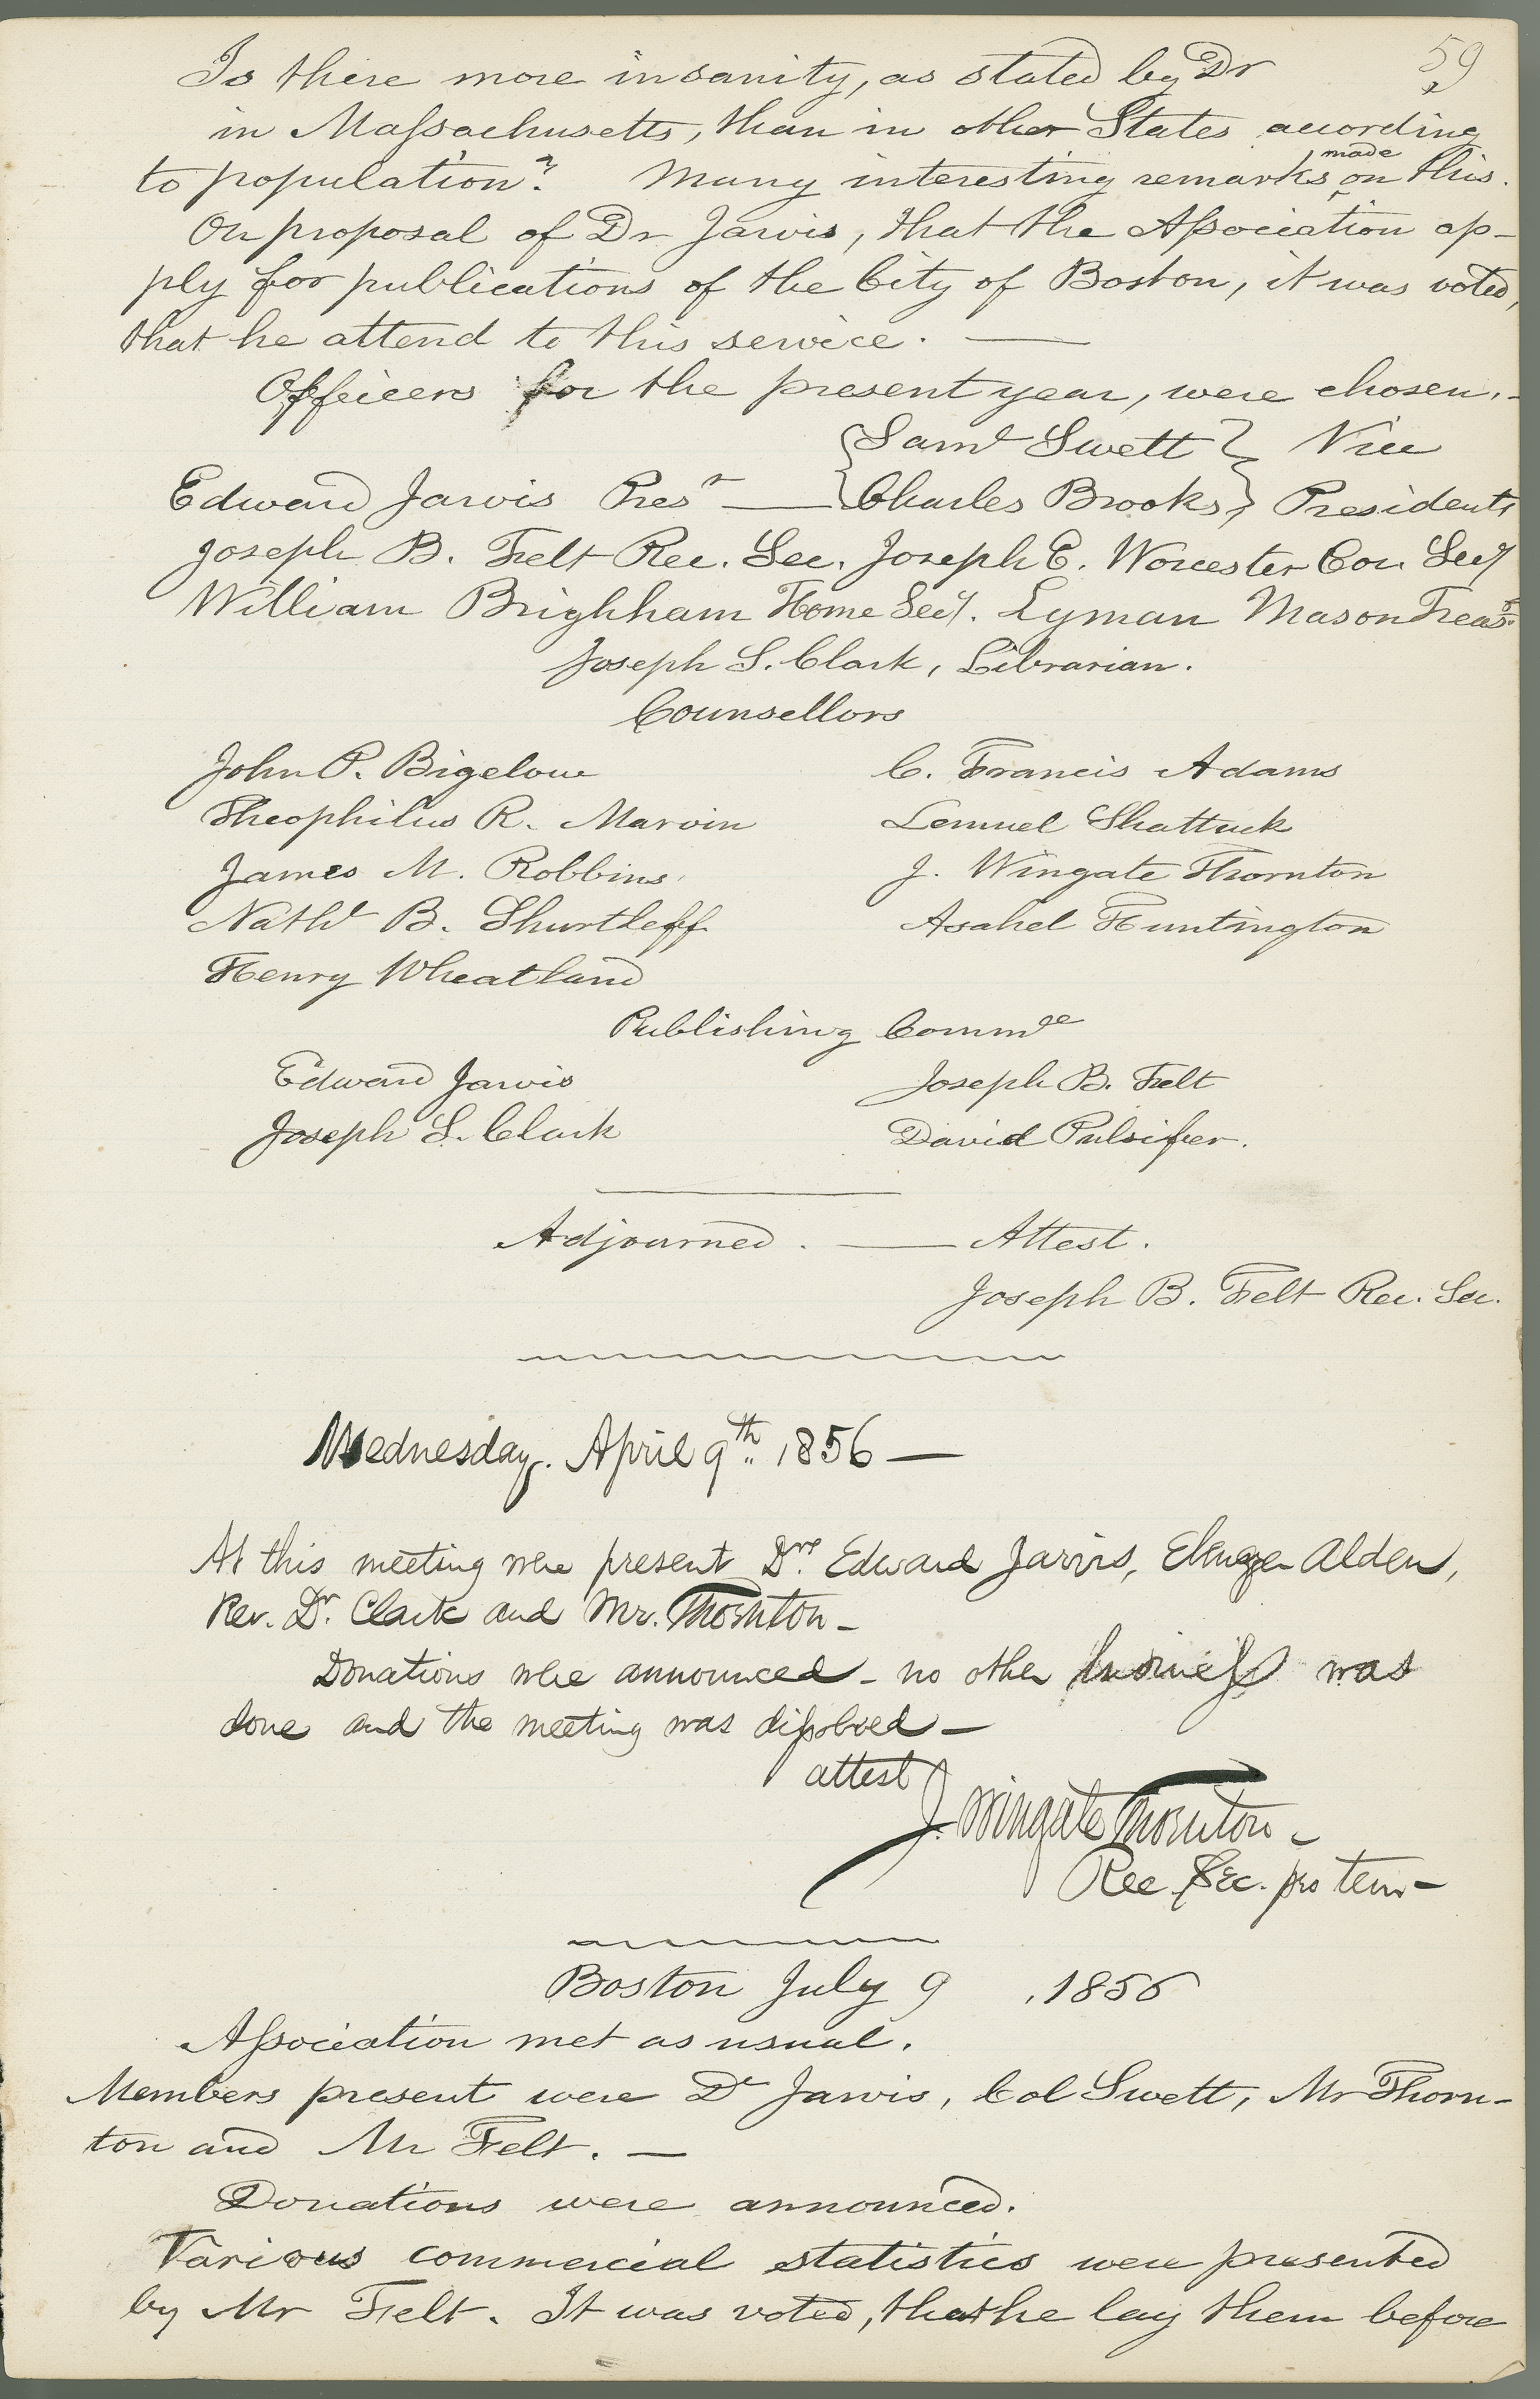 59
Is there more insanity, as stated by Dr
in Massachusetts, than in other States according
to population? Many interesting remarks made on this.
On proposal of Dr Jarvis, that the Association ap-
ply for publications of the City of Boston, it was voted,
that he attend to this service. —
Officers for the present year, were chosen.-
Saml Swett } Vice
Edward Jarvis Prest — { Charles Brooks } Presidents
Joseph B. Felt Rec. Sec. Joseph E. Worcester Cor. Secy
William Brighham Home Secy. Lyman Mason Treasr.
Joseph S. Clark, Librarian.
Counsellors
John P. Bigelow C. Francis Adams
Theophilus R. Marvin Lemuel Shattuck
James M. Robbins J. Wingate Thornton
Nathl B. Shurtleff Asahel Huntington
Henry Wheatland
Publishing Commee
Edward Jarvis Joseph B. Felt
Joseph S. Clark David Pulsifer.
Adjourned. — Attest.
Joseph B. Felt Rec. Sec.
Wednesday. April 9th. 1856 —
At this meeting were present Drs. Edward Jarvis, Ebenezer Alden,
Rev. Dr. Clark and Mr. Thornton —
Donations were announced — no other business was
done and the meeting was dissolved —
attest
J. Wingate Thornton —
Rec. Sec. pro tem —
Boston July 9 , 1856
Association met as usual.
Members present were Dr Jarvis, Col Swett, Mr Thorn-
ton and Mr Felt. —
Donations were announced.
Various commercial statistics were presented
by Mr Felt. It was voted, that he lay them before